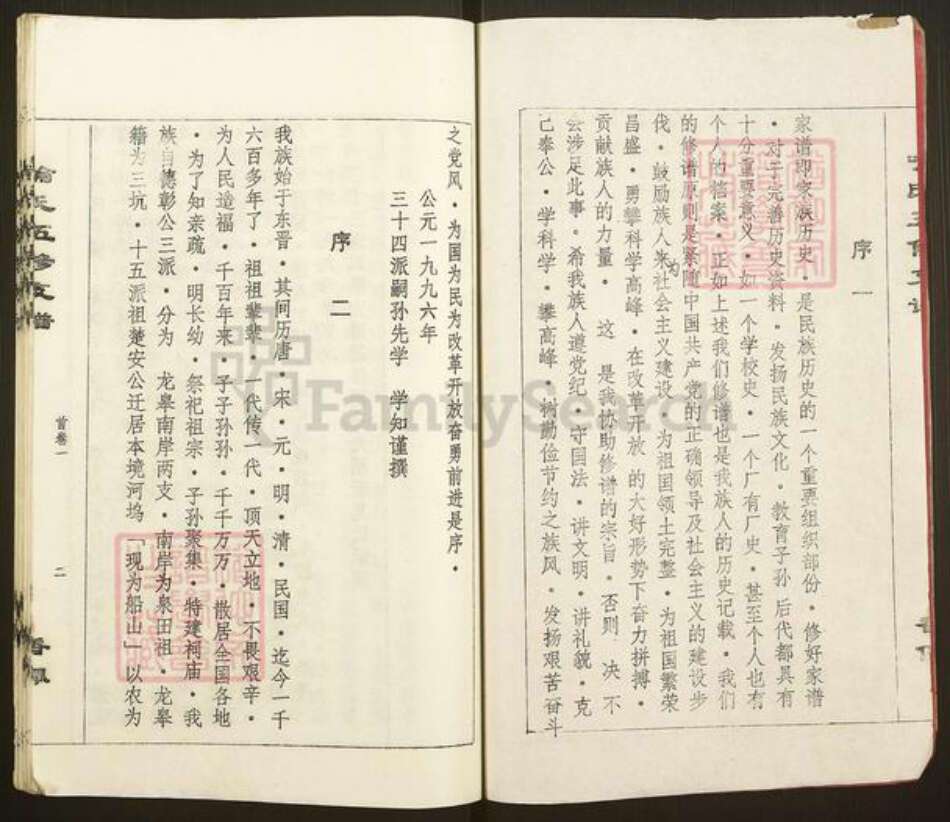 序一
家谱即家族历史·是民族历史的一个重要组织部份·修好家谱
·对于完善历史资料·发扬民族文化·教育子孙后代都具有
十分重要意义·如一个学校史·一个厂有厂史·甚至个人也有
个人的档案·正如上述我们修谱也是我族人的历史记载·我们
的修谱原则是紧随中国共产党的正确领导及社会主义的建设步
伐·鼓励族人来为社会主义建设·为祖国领土完整·为祖国繁荣
昌盛·勇攀科学高峰·在改革开放的大好形势下奋力拼搏·
贡献族人的力量·这是我协助修谱的宗旨·否则决不
会涉足此事·希我族人遵党纪·守国法·讲文明·讲礼貌·克
己奉公·学科学·攀高峰·树勤俭节约之族风·发扬艰苦奋斗
之党风·为国为民为改革开放奋勇前进是序·
公元一九九六年
三十四派嗣孙先学 学知谨撰
序二
我族始于东晋·其间历唐·宋·元·明·清·民国·迄今一千
六百多年了·祖祖辈辈·一代传一代·顶天立地·不畏艰辛·
为人民造福·千百年来·子子孙孙·千千万万·散居全国各地
·为了知亲疏·明长幼·祭祀祖宗·子孙聚集·特建祠庙·我
族自德彰公三派·分为 龙皋南岸两支·南岸为泉田祖·龙皋
籍为三坑·十五派祖楚安公迁居本境河坞「现为船山」以农为
氏五修支谱
首卷一
二
FamilySearch